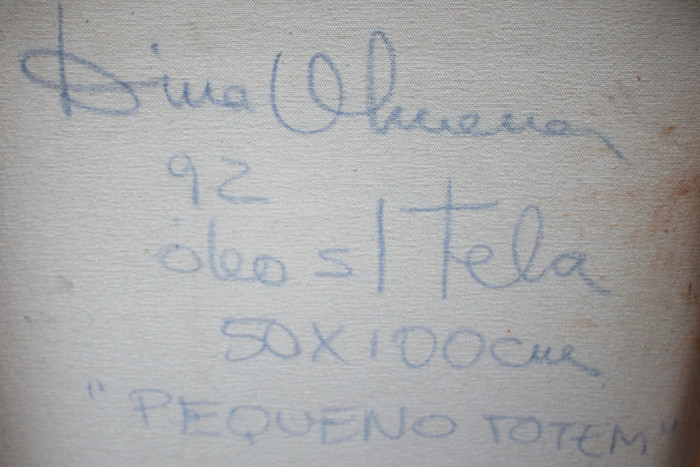 Dina Oliveira
92
óleo s/ Tela
50X100cm
"PEQUENO TOTEM"